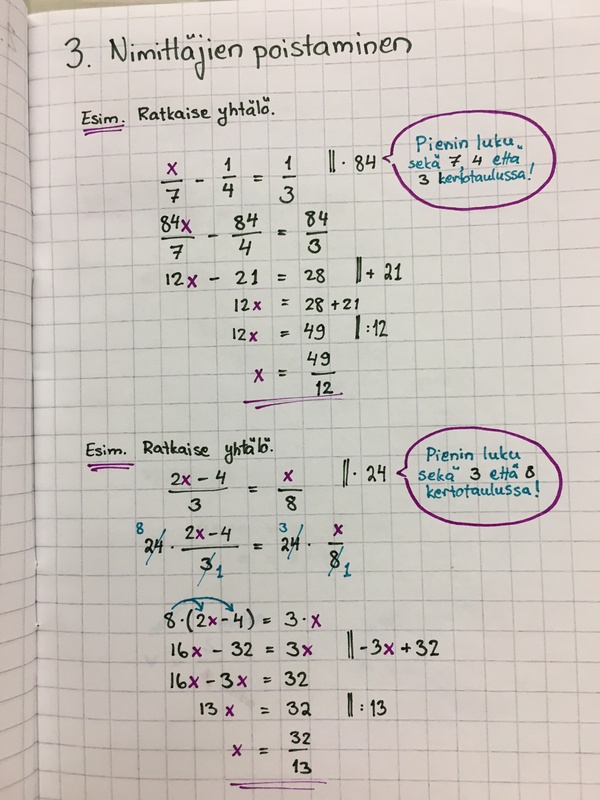 3. Nimittäjien poistaminen
Esim. Ratkaise yhtälö.
x/7 - 1/4 = 1/3 || · 84
Pienin luku
sekä 7, 4 että
3 kertotaulussa!
84x/7 - 84/4 = 84/3
12x - 21 = 28 || + 21
12x = 28 + 21
12x = 49 || : 12
x = 49/12
Esim. Ratkaise yhtälö.
(2x - 4)/3 = x/8 || · 24
Pienin luku
sekä 3 että 8
kertotaulussa!
8 3
24 · (2x - 4)/3 1 = 24 · x/8 1
8 · (2x - 4) = 3 · x
16x - 32 = 3x || - 3x + 32
16x - 3x = 32
13x = 32 || : 13
x = 32/13